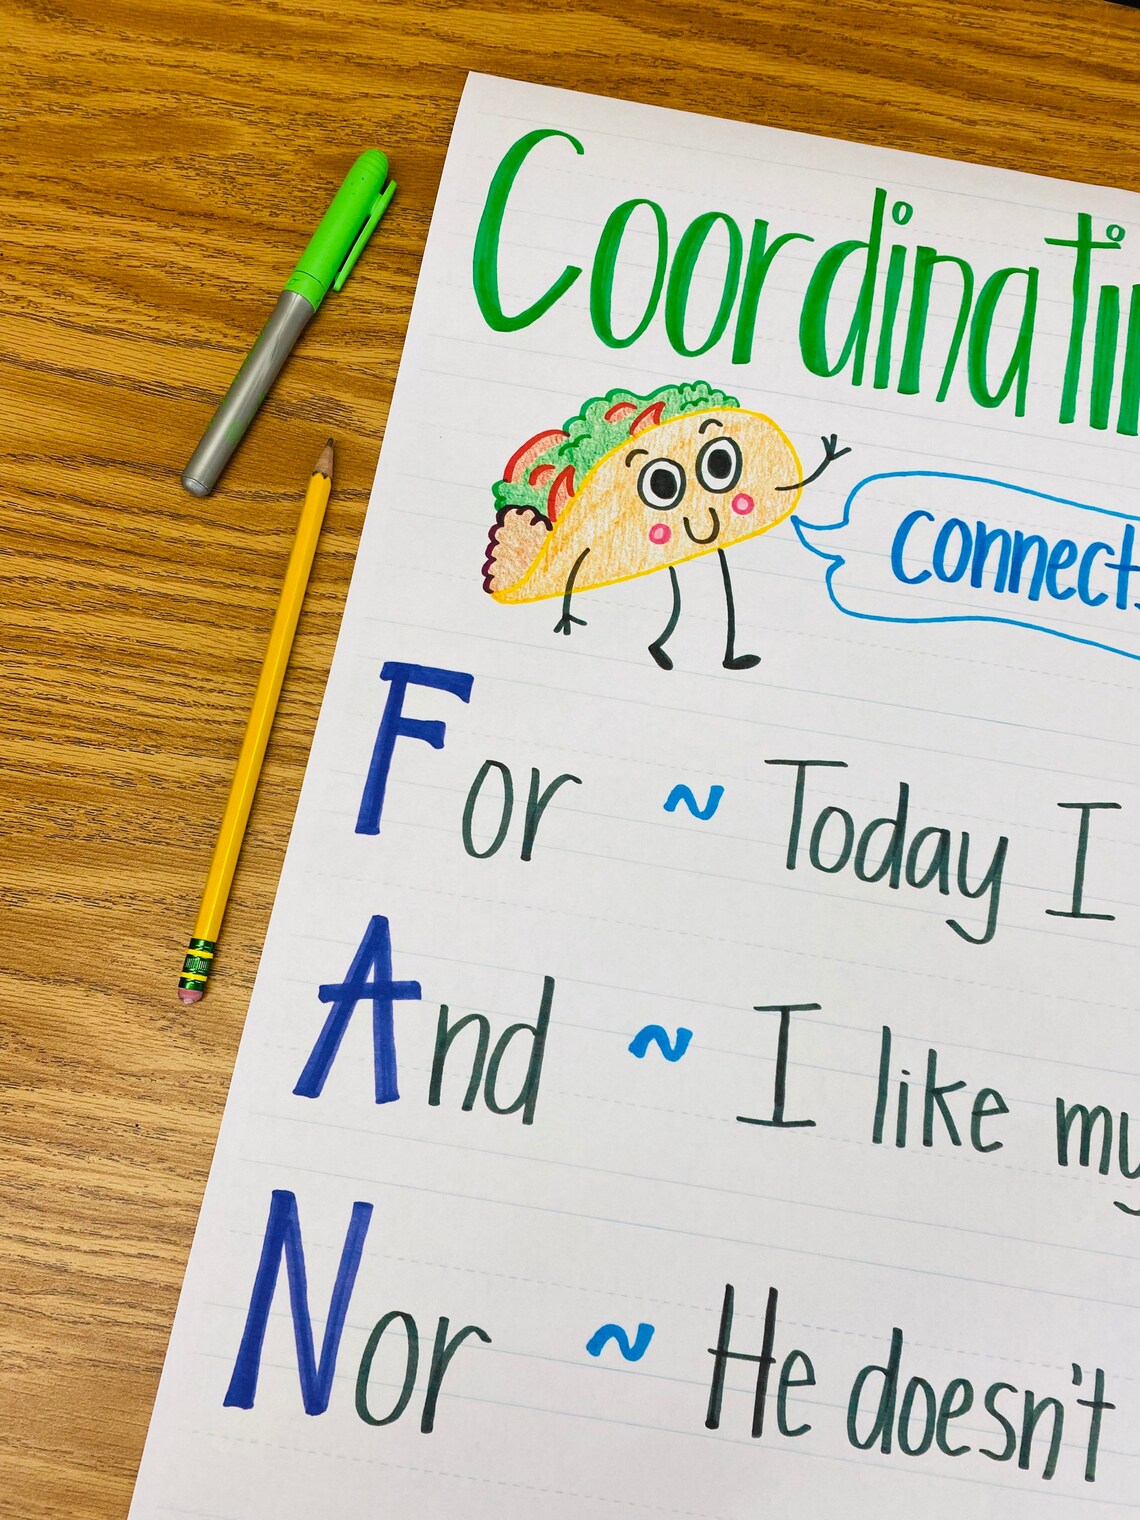 Coordinatin
connects
For ~ Today I
And ~ I like my
Nor ~ He doesn't